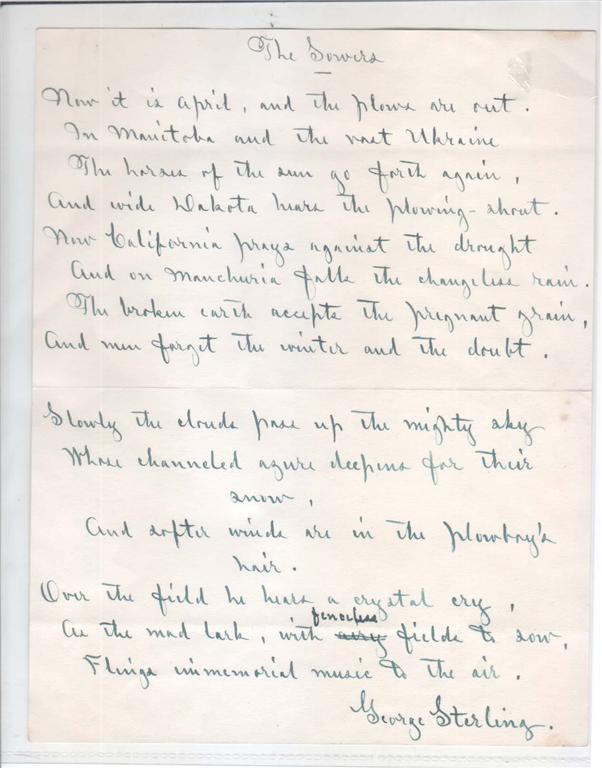 The Sowers
Now it is April, and the plows are out.
In Manitoba and the vast Ukraine
The horses of the sun go forth again,
And wide Dakota hears the plowing-shout.
Now California prays against the drought
And on Manchuria falls the changeless rain.
The broken earth accepts the pregnant grain,
And men forget the winter and the doubt.
Slowly the clouds pass up the mighty sky
Whose channeled azure deepens for their
snow,
And softer winds are in the plowboy's
hair.
Over the field he hears a crystal cry,
fenceless
As the mad lark, with airy fields to sow,
Flings immemorial music to the air.
George Sterling.